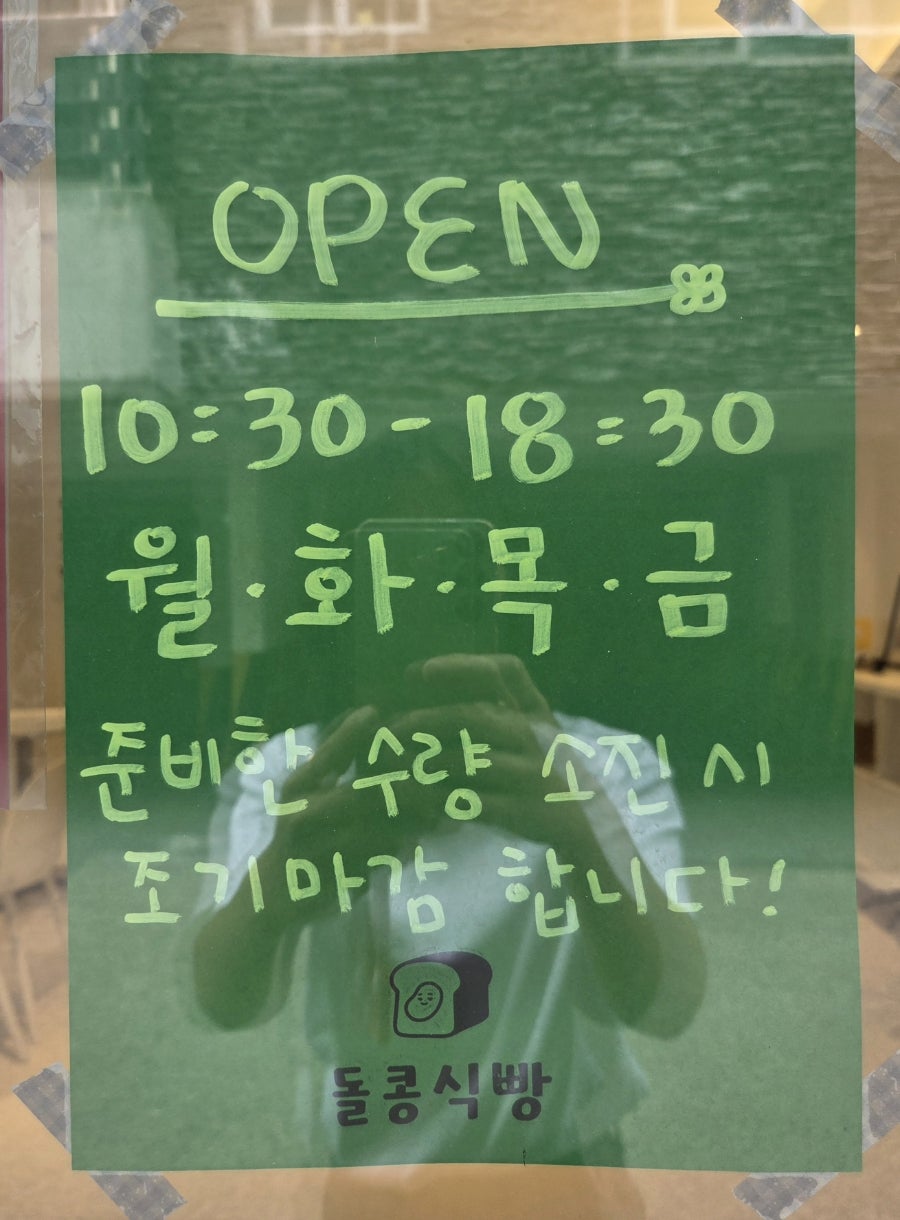 OPEN
10:30-18:30
월·화·목·금
준비한 수량 소진 시
조기마감 합니다!
돌콩식빵